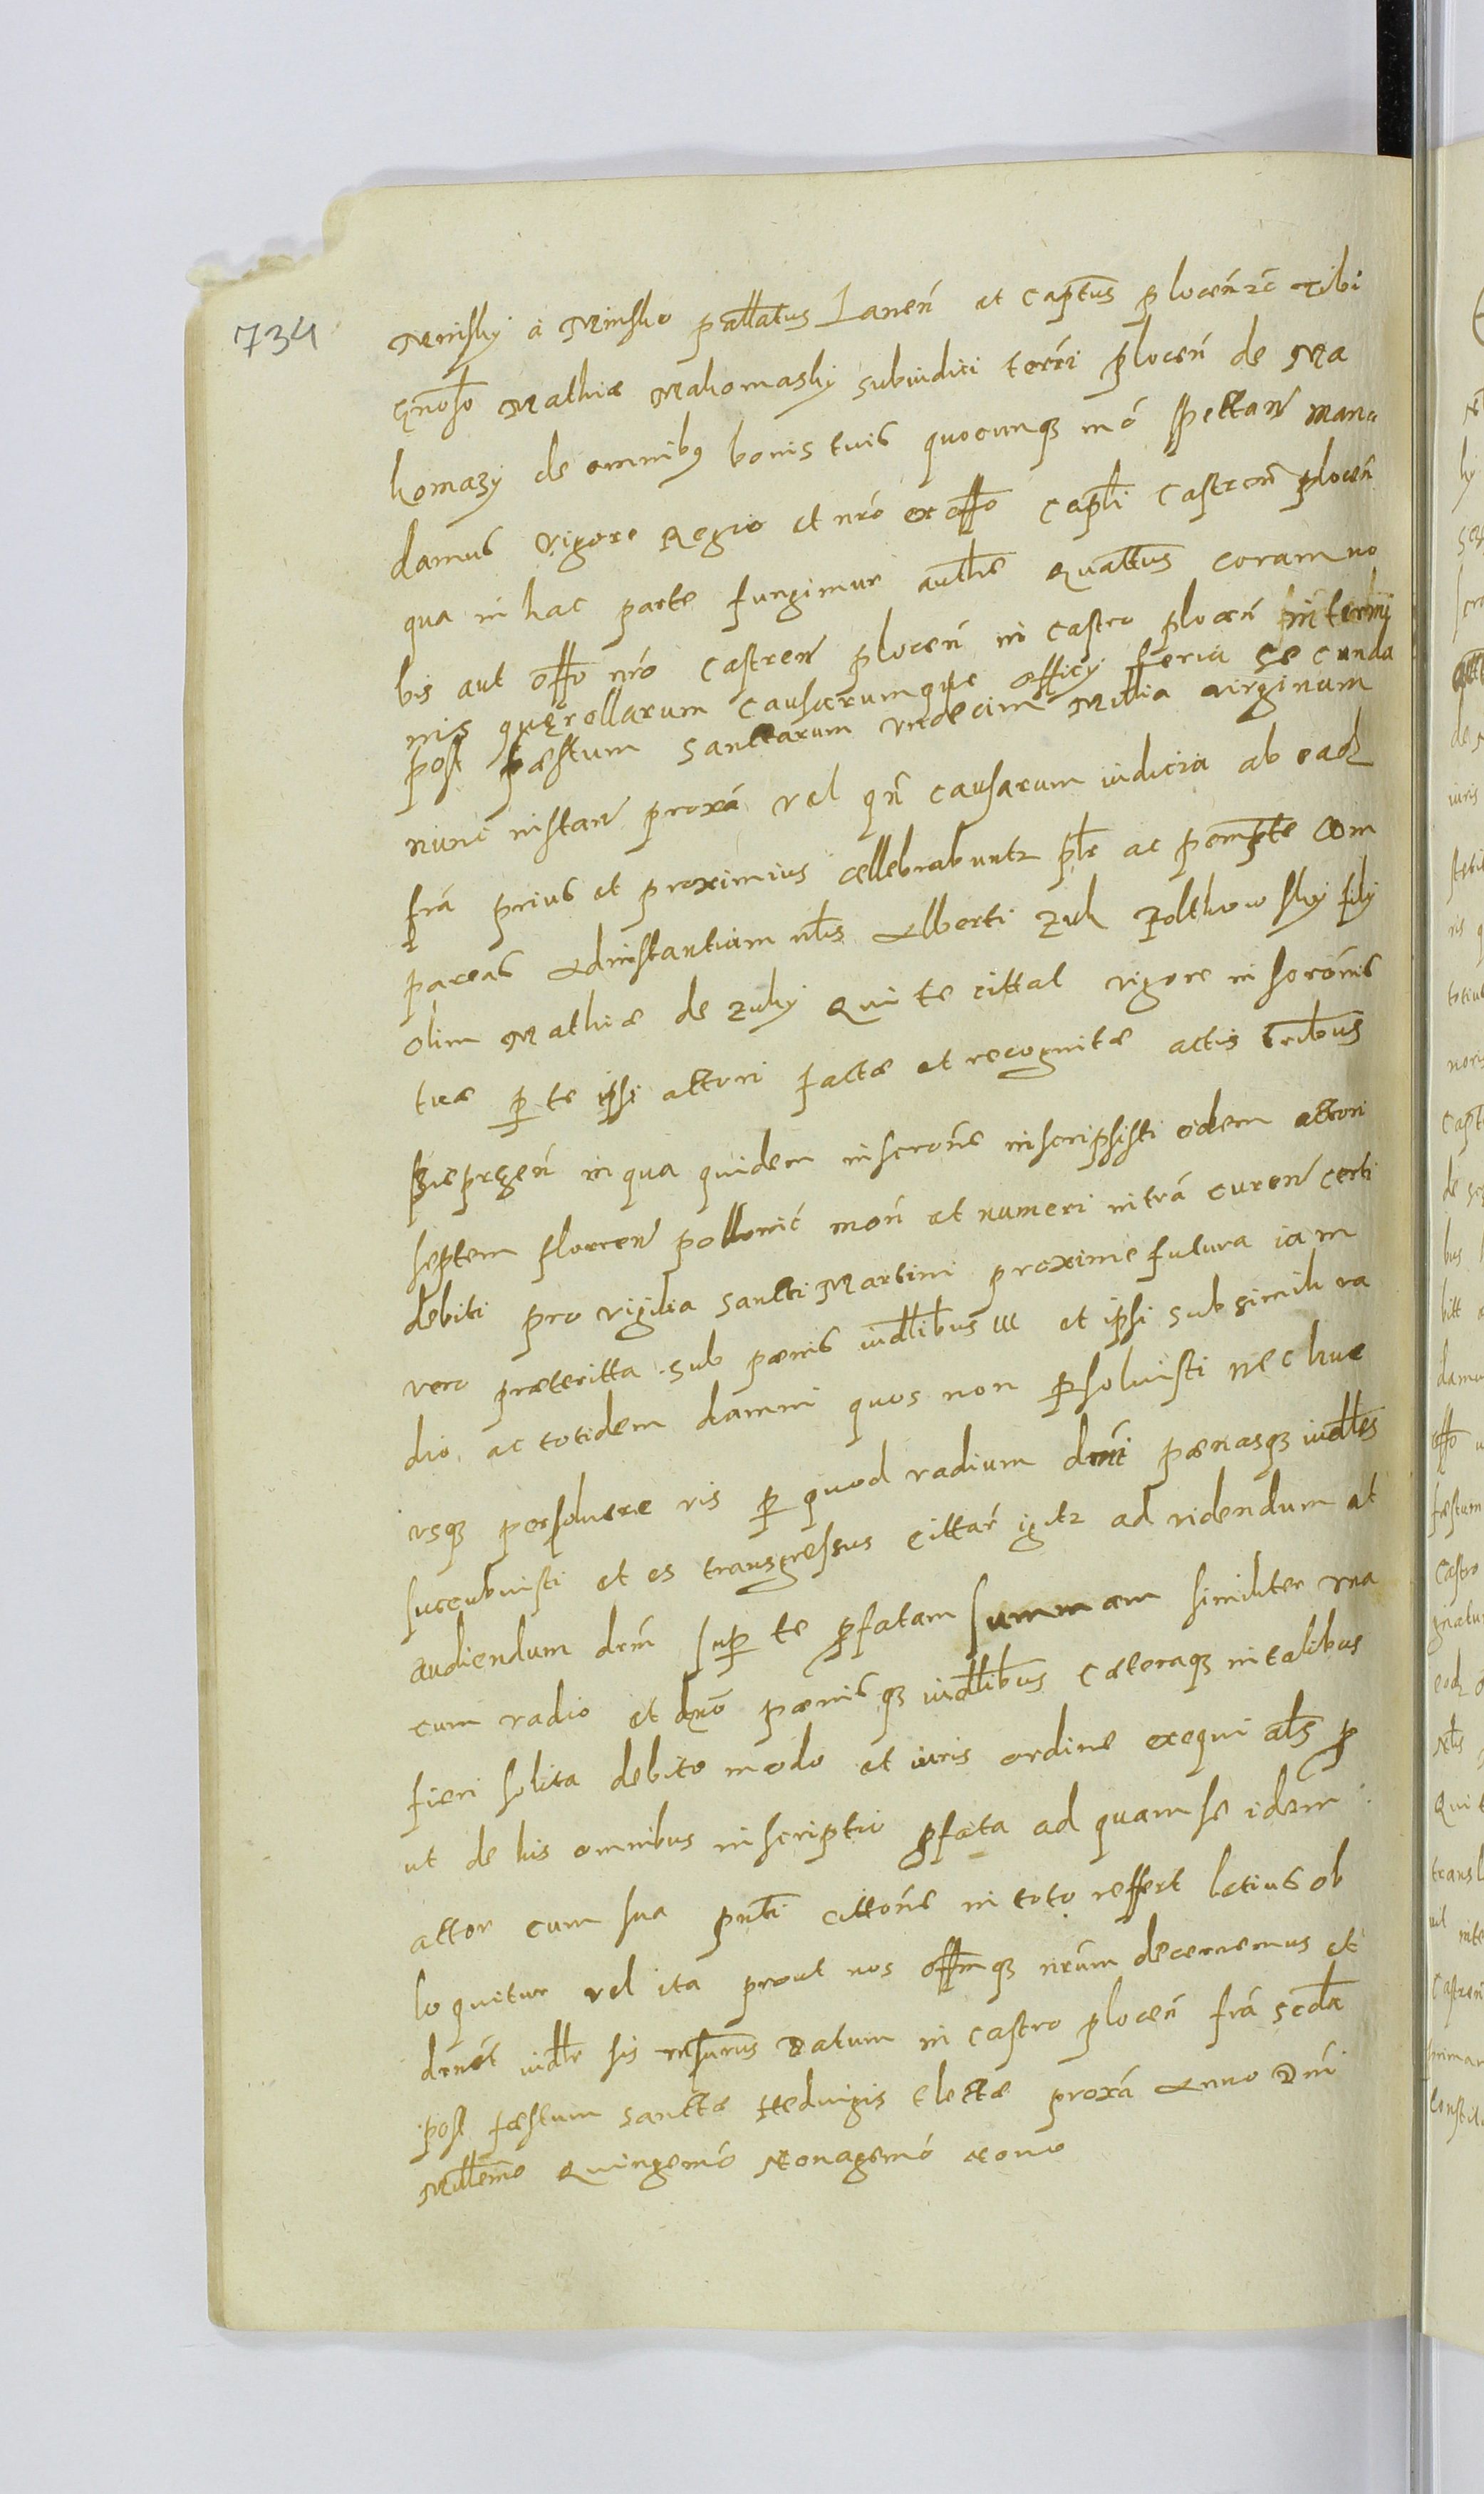 734
Minsky à Minsko pallatus Lanen̄ et Captus plocen̄ zc̄ Tibi
Gnoso Mathiæ Makomasky subiudici terri plocen̄ de Ma
komazy de omnibg bonis tuis quocunqz mo spectan̄ man
damus vigore Regio et nro ex offo Capli Castren̄ plocen̄
qua in hac parte fungimur authe Quattus coram no
bis aut offo nro Castren̄ plocen̄ in castro plocen̄ in termi
nis quęrellarum causarumque officy feria Secunda
post fæstum sanctarum vndecim Millia virginum
nunc instan̄ proxa vel qn̄ causarum iudicia ab eadz
fra prius et proximius cellebrabuntz plr ac pempte Com
pareas Ad instantiam nlis Alberti Zuk Zolthowsky fily
olim Mathiæ de Zuky Qui te cittat vigore inscronis
tuæ p te ipsi actori factæ et recognitæ actis Tribus
Sieprzen̄ in qua quidem inscrone inscripsisti eidem actori
septem floren̄ pollonic mon̄ et numeri intra curen̄ certi
debiti pro vigilia sancti Martini proxime futura iam
vero præteritta sub pœnis iudlibus lll et ipsi sub simili va
dio ac totidem damni quos non psoluisti nec huc
vsqz persoluere vis p quod vadium dmi pœnasqz iudles
succubuisti et es transgressus cittar igitz ad videndum et
audiendum drm̄ sup te pfatam summam similiter vna
cum vadio et dno pœnisqz iudlibus Cæteraqz in talibus
fieri solita debito modo et iuris ordine exequi als p
ut de his omnibus inscriptio pfata ad quam se idem
actor cum sua pnti cittone in toto reffert latius ob
loquitur vel ita prout nos offmqz nrum decernemus et
drnet iudlr sis rnsurus Datum in castro plocen̄ fra scda
post fæstum sanctæ Heduigis Electæ proxa Anno Dni
Millemo Quingemo Nonagemo Nono